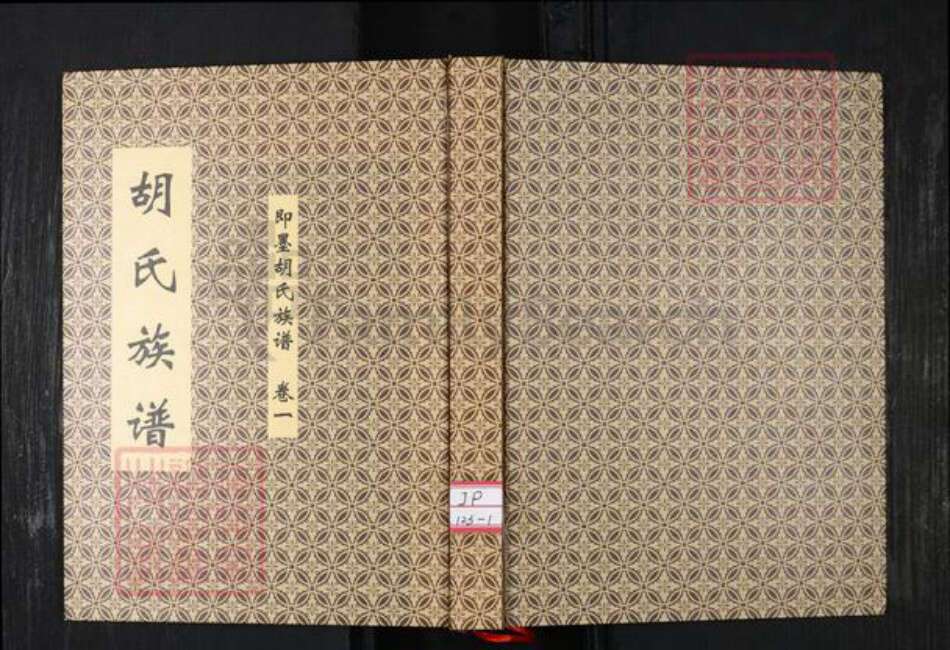 胡氏族谱
即墨胡氏族谱 卷一
JP
135-1